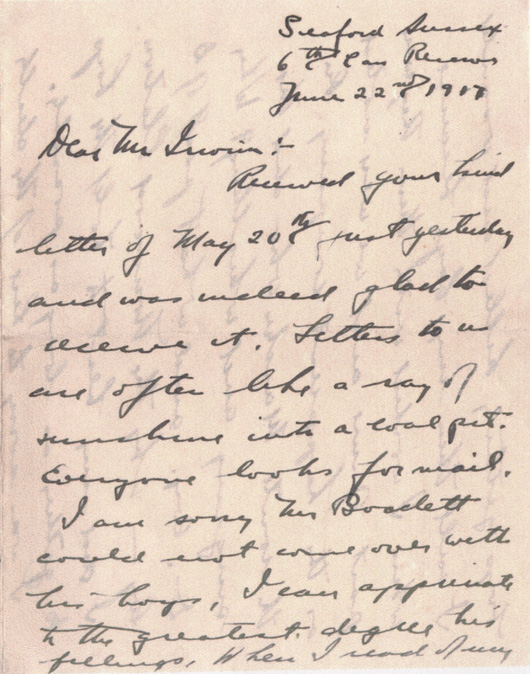 Seaford Sussex
6th Can Reserves
June 22nd 1917
Dear Mr Irwin:-
Received your kind
letter of May 20th just yesterday
and was indeed glad to
receive it. Letters to us
are often like a ray of
sunshine into a coal pit.
Everyone looks for mail.
I am sorry Mr
could not come over with
his boys, I can appreciate
to the greatest degree his
feelings, When I read of my